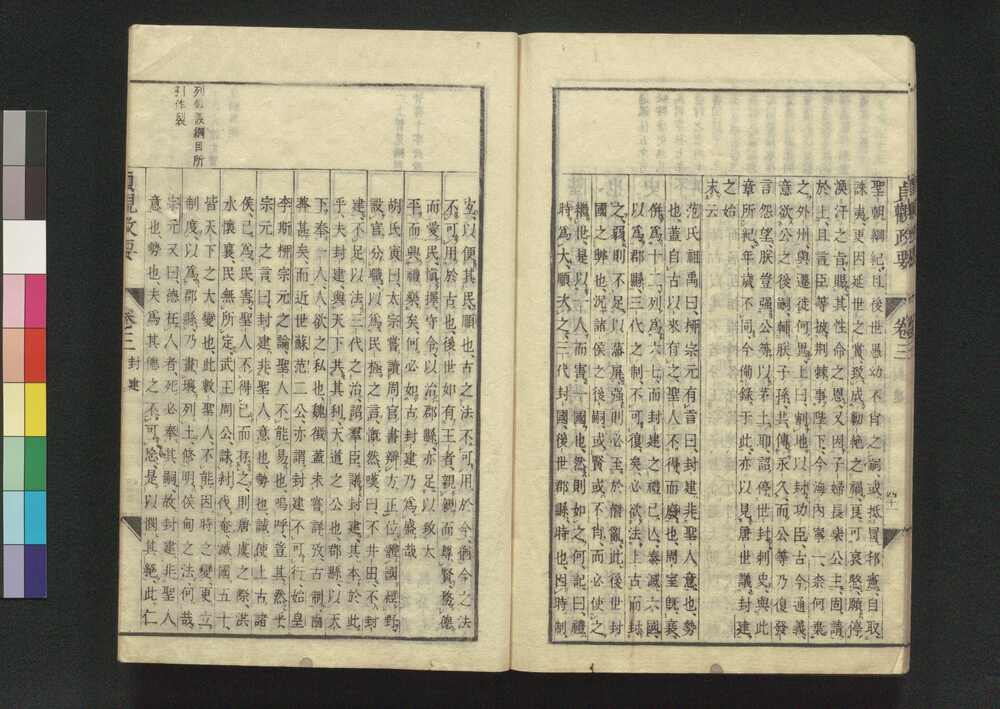 貞觀政要 卷三
聖朝綱紀且後世愚幼不肖之嗣或抵冒邦憲自取
誅夷更因延世之賞致成勦絶之禍良可哀愍願停
渙汗之旨賜其性命之恩又因子婦長樂公主固請
於上且言臣等披荆棘事陛下今海內寧一奈何棄
之外州與遷徙何異上曰割地以封功臣古今通義
意欲公之後嗣輔朕子孫共傳永久而公等乃復發
言怨望朕豈强公等以茅土耶詔停世封刺史與此
章所紀年歲不同今備錄于此亦以見唐世議封建
之始
末云
范氏祖禹曰栁宗元有言曰封建非聖人意也勢
也蓋自古以來有之聖人不得而廢也周室旣衰
併爲十二列爲六七而封建之禮已亡秦滅六國
以爲郡縣三代之制不可復矣必欲法上古而封
之弱則不足以藩屏强則必至於僭亂此後世封
國之弊也况諸侯之後嗣或賢或不肖而必使之
繼世是以一人而害一國也然則如之何記曰禮
時爲大順次之三代封國後世郡縣時也因時制
宜以便其民順也古之法不可用於今猶今之法
不可用於古也後世如有王者親親而尊賢務德
而愛民愼擇守令以治郡縣亦足以致太
平而興禮樂矣何必如古封建乃爲盛哉
胡氏寅曰太宗嘗讀周官書辯方正位體國經野
設官分職以爲民極之言慨然嘆曰不井田不封
建不足以法三代之治詔羣臣議封建其本於此
乎夫封建與天下共其利天道之公也郡縣以天
下奉一人人欲之私也魏徵蓋未嘗詳攷古制幽
善甚矣而近世蘇范二公亦謂封建不可行始皇
李斯栁宗元之論聖人不能易也嗚呼豈其然乎
宗元之言曰封建非聖人意也勢也誠使上古諸
侯已爲民害聖人不得已而存之則唐虞之際洪
水懷襄民無所定武王周公誅紂伐奄滅國五十
皆天下之大變也此數聖人不能因時之變更立
制度以爲郡縣乃畫壤列土修明侯甸之法何哉
宗元又曰德在人者死必奉其嗣故封建非聖人
意也勢也夫爲其德之不可㤀是以憫其絶此仁
貞觀政要 卷三 封建